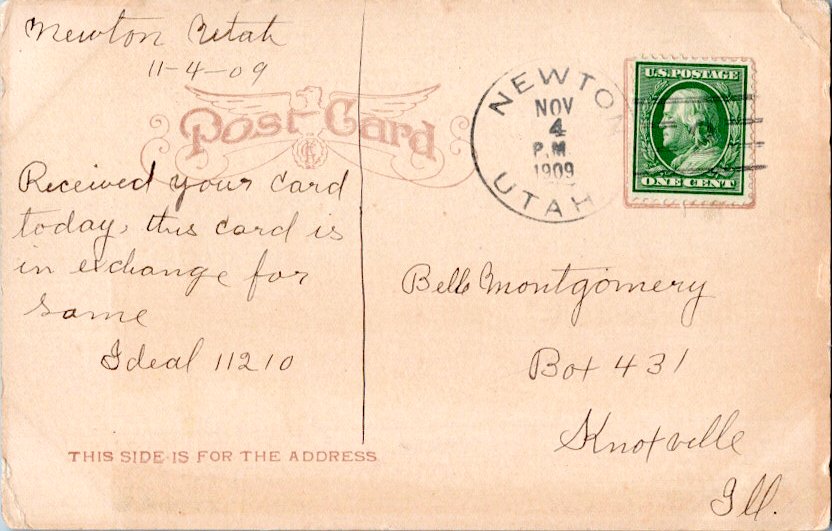 Newton Utah
11-4-09
Post Card
Received your card
today, this card is
in exchange for
same
Ideal 11210
THIS SIDE IS FOR THE ADDRESS
NEWTON
NOV
4
P.M.
1909
UTAH
U.S. POSTAGE
ONE CENT
Belle Montgomery
Box 431
Knoxville
Ill.